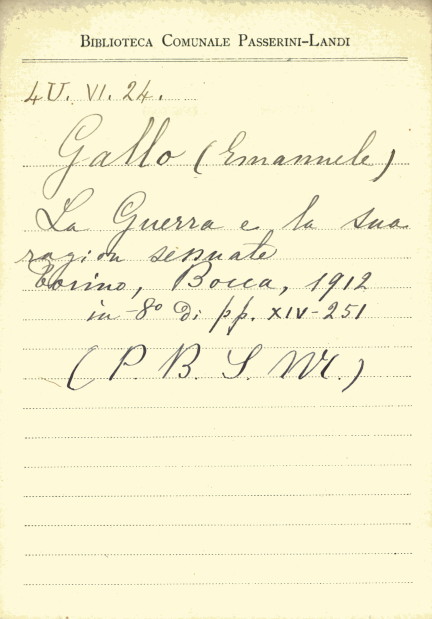 BIBLIOTECA COMUNALE PASSERINI-LANDI
4U. VI. 24.
Gallo (Emanuele)
La Guerra e la sua
ragion
Torino, Bocca, 1912
in-8° di pp. XIV-251
(P. B. S. M.)